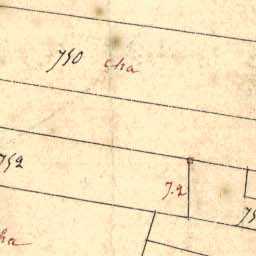 750 cha
752
7.2
75
ha